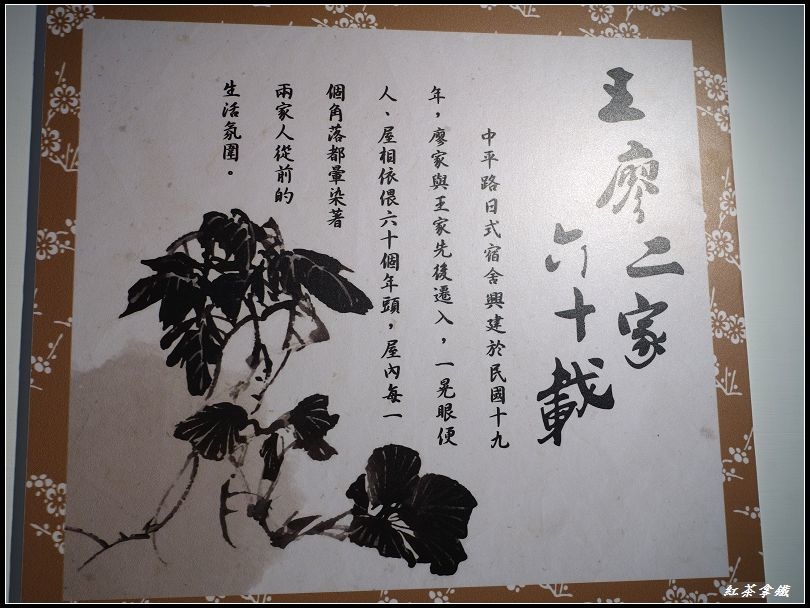 王廖二家
六十載
中平路日式宿舍興建於民國十九
年，廖家與王家先後遷入，一晃眼便
人、屋相依偎六十個年頭，屋內每一
個角落都暈染著
兩家人從前的
生活氛圍。
紅茶拿鐵